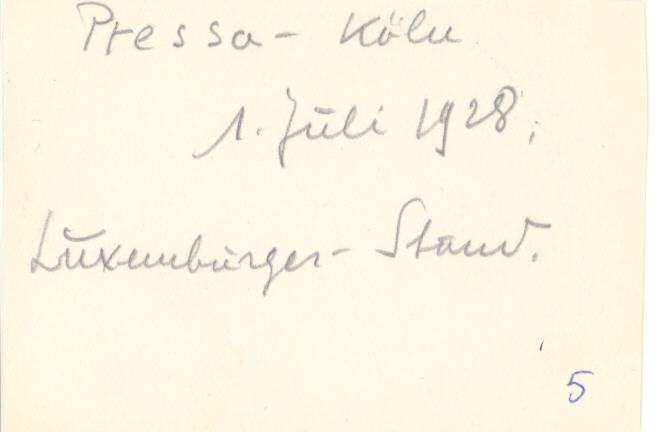 Pressa - Köln
1. Juli 1928.
Luxemburger - Stand.
5